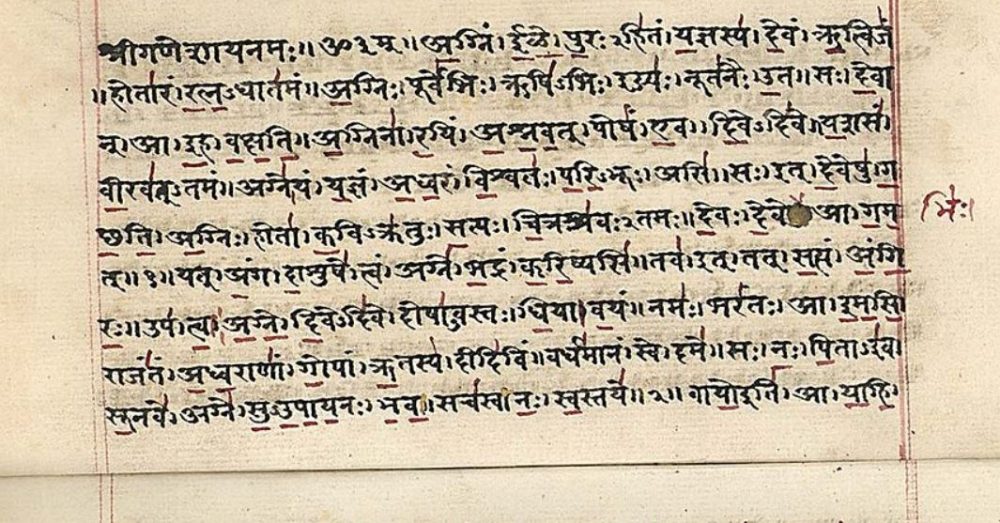 श्रीगणेशायनमः॥ॐ३म्॥अ॒ग्निं।ई॒ळे॒।पु॒रःऽहि॑तं।य॒ज्ञस्य॑।दे॒वं।ऋ॒त्विजं॑
॥होता॑रं।र॒त्न॒ऽधात॑मं॥अ॒ग्निः।पूर्वे॑भिः।ऋषि॑ऽभिः।ईड्यः॑।नूत॑नैः।उ॒त॥सः।दे॒वा
न्।आ।इ॒ह।व॒क्ष॒ति॒॥अ॒ग्निना॑।र॒यिं।अ॒श्न॒व॒त्।पोषं॑।ए॒व।दि॒वेऽदि॑वे॥य॒शसं॑
वी॒रव॑त्ऽतमं॥अग्ने॑।यं।य॒ज्ञं।अ॒ध्व॒रं।वि॒श्वतः॑।प॒रि॒ऽभूः।असि॑॥सः।इत्।दे॒वेषु॑।ग॒
च्छ॒ति॒।अ॒ग्निः।होता॑।क॒विऽक्र॑तुः।स॒त्यः।चि॒त्रश्र॑वःऽतमः॥दे॒वः।दे॒वे आ।ग॒म॒
भिः॑।
त्॥१॥यत्।अं॒ग।दा॒शुषे॑।त्वं।अग्ने॑।भ॒द्रं।क॒रि॒ष्यसि॑॥तव॑।इत्।तत्।स॒त्यं।अं॒गि॒
रः॒॥उप॑।त्वा॒।अ॒ग्ने॒।दि॒वेऽदि॑वे।दोषा॑ऽवस्तः।धि॒या।व॒यं॥नमः॑।भरं॑तः।आ।इ॒म॒सि॒
राजं॑तं।अ॒ध्व॒राणां॑।गो॒पां।ऋ॒तस्य॑।दीदि॑विं॥वर्ध॑मानं।स्वे।दमे॑॥सः।नः॒।पि॒ताऽइ॑व।
सू॒नवे॑।अग्ने॑।सु॒ऽउ॒पा॒य॒नः।भ॒व॒॥सच॑स्व।नः॒।स्व॒स्तये॑॥२॥वायो॒इति॑।आ।या॒हि॒।